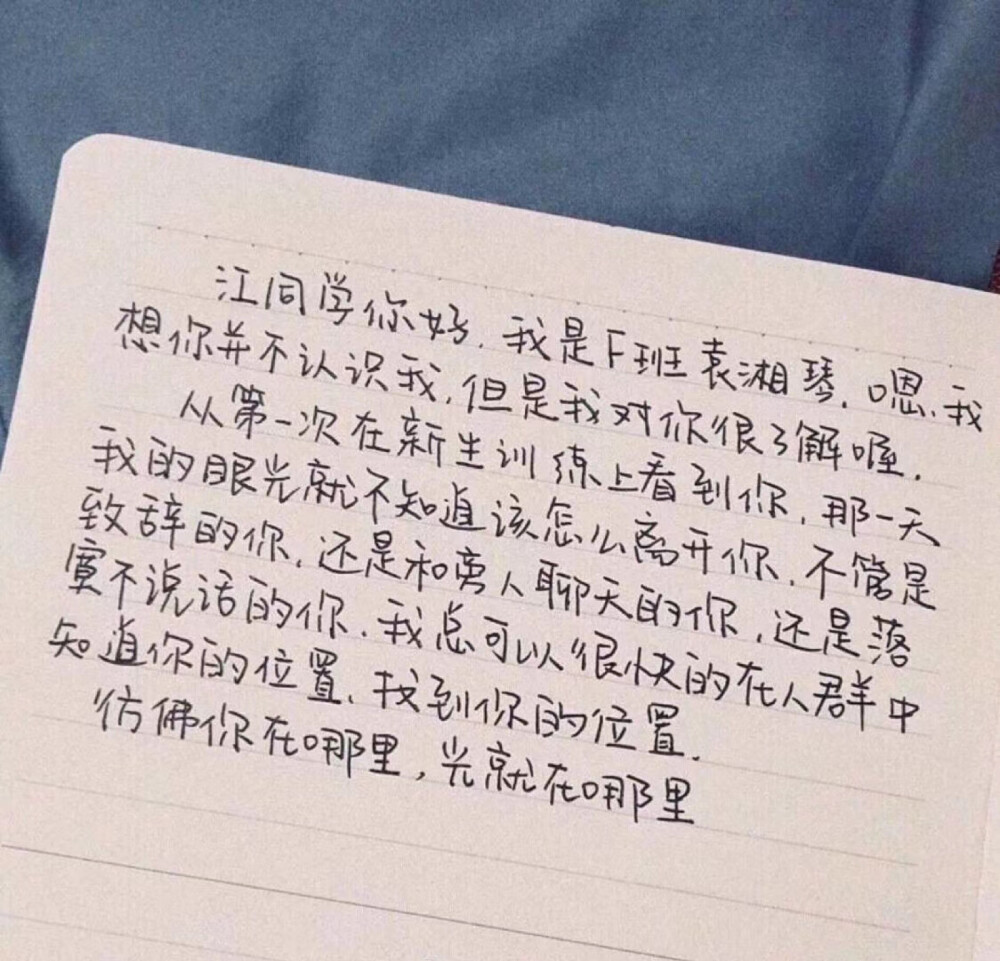 江同学你好，我是F班袁湘琴，嗯，我
想你并不认识我，但是我对你很了解喔，
从第一次在新生训练上看到你，那一天
我的眼光就不知道该怎么离开你，不管是
致辞的你，还是和旁人聊天的你，还是落
寞不说话的你，我总可以很快的在人群中
知道你的位置、找到你的位置，
仿佛你在哪里，光就在哪里